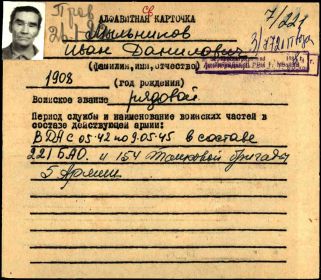 7/221
АЛФАВИТНАЯ КАРТОЧКА
Мыльников
Иван Данилович
(фамилия, имя, отчество)
1908
(год рождения)
Воинское звание рядовой
Период службы и наименование воинских частей в
составе действующей армии:
В ДА с 05.42 по 9.05.45 в составе
221 БАО и 154 Танковой бригады
5 Армии